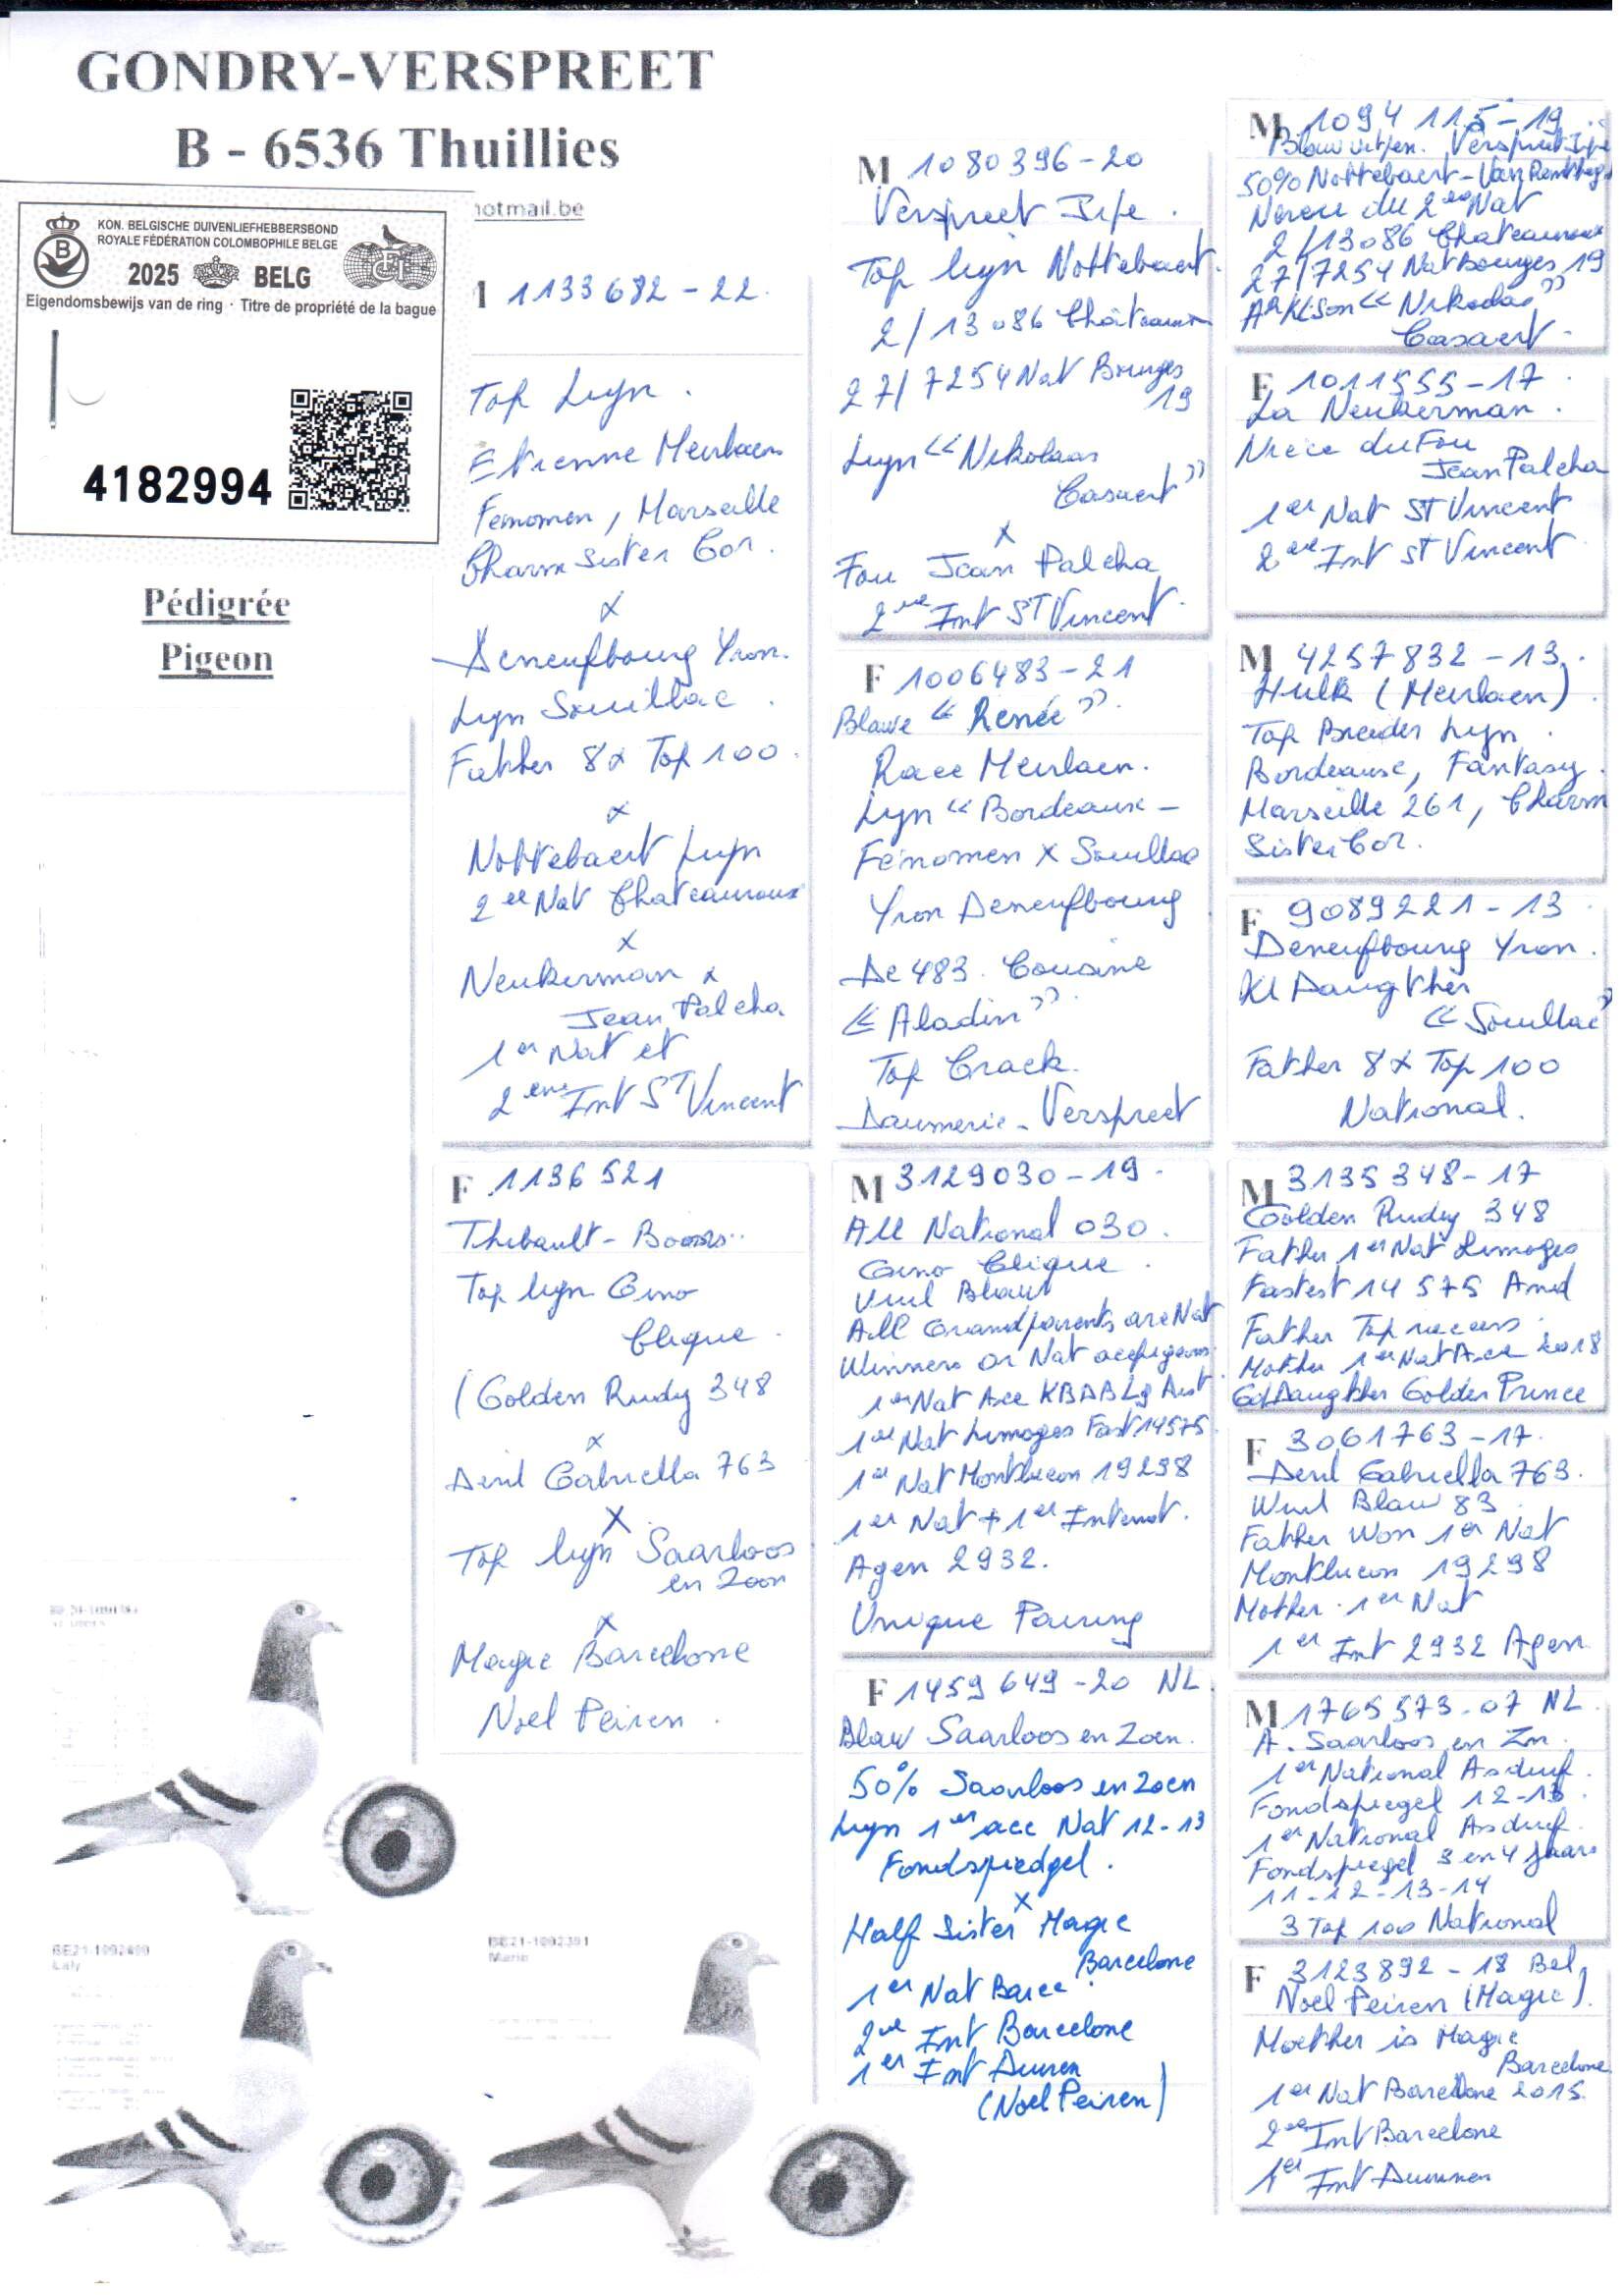 GONDRY-VERSPREET
B - 6536 Thuillies
hotmail.be
KON. BELGISCHE DUIVENLIEFHEBBERSBOND
ROYALE FÉDÉRATION COLOMBOPHILE BELGE
2025 BELG
Eigendomsbewijs van de ring · Titre de propriété de la bague
4182994
Pédigrée
Pigeon
1133682-22
Top Lyn.
Etienne Meulaen
Fenomen, Marseille
Charm Sister Cor.
x
Deneufbourg Yvon.
Lyn Souillac.
Father 8x Top 100.
x
Nottebaert Lyn
2 er Nat Chateauroux
x
Neukerman x
Jean Palcha
1 er Nat et
2 eme Int ST Vincent
F 1136521
Thibault-Boons..
Top lyn Gino
Clique.
(Golden Rudy 348
x
Devil Gabriella 763
X
Top lyn Saarloos
en Zoon
x
Magic Barcelone
Noel Peiren.
M 1080396-20
Verspreet Jefe.
Top lyn Nottebaert.
2/13086 Châteauroux
27/7254 Nat Bourges
19
Lyn "Nikolaas
Casaert"
x
Fou Jean Palcha
2 me Int ST Vincent.
F 1006483-21
Blauwe "Renée".
Race Meulaen.
Lyn "Bordeaux-
Fénomen x Souillac
Yvon Deneufbourg
De 483. Cousine
"Aladin"
Top Crack.
Daumerie-Verspreet
M 3129030-19.
All National 030.
Gino Clique.
Vuil Blauw
All Grandparents are Nat
Winners or Nat acepigeons
1 er Nat Ace KBDB Lg Afst.
1 er Nat Limoges Fast 14575.
1 er Nat Montlucon 19298
1 er Nat + 1 er Internat.
Agen 2932.
Unique Pairing
F 1459649-20 NL.
Blauw Saarloos en Zoen.
50% Saarloos en Zoen
Lyn 1 er ace Nat 12-13
Fondspiedgel.
x
Half Sister Magic
Barcelone
1 er Nat Barce.
2 me Int Barcelone
1 er Int Duiven
(Noel Peiren)
M 1094115-19
Blauw witpen. Verspreet Jefe
50% Nottebaert-Van
Neveu du 2 eme Nat
2/13086 Chateauroux
27/7254 Nat Bourges 19
"Nikolaas"
Casaert.
F 1011555-17.
La Neukerman.
Niece du Fou
Jean Palcha
1 er Nat ST Vincent
2 eme Int ST Vincent
M 4257832-13.
Hulk (Meulaen)
Top Breeder Lyn.
Bordeaux, Fantasy.
Marseille 261, Charm
Sister Cor.
F 9089221-13
Deneufbourg Yvon.
Kl Daugther
"Souillac"
Father 8x Top 100
National.
M 3135348-17
Golden Rudy 348
Father 1 er Nat Limoges
Fastest 14575 And
Father Top racers.
Mother 1 er Nat Ace 2018
Gd Daugther Golden Prince
F 3061763-17.
Devil Gabriella 763.
Vuil Blauw 83
Father Won 1 er Nat
Montlucon 19298
Mother. 1 er Nat
1 er Int 2932 Agen
M 1765573-07 NL.
A. Saarloos en Zn.
1 er National Asduif.
Fondspiegel 12-13.
1 er National Asduif.
Fondspiegel 3 en 4 Jaars
11-12-13-14
3 Top 100 National
F 3123892-18 Bel.
Noel Peiren (Magic).
Moether is Magic
Barcelone
1 er Nat Barcelone 2015.
2 me Int Barcelone
1 er Int
BE21-1092400
Laly
BE21-1092391